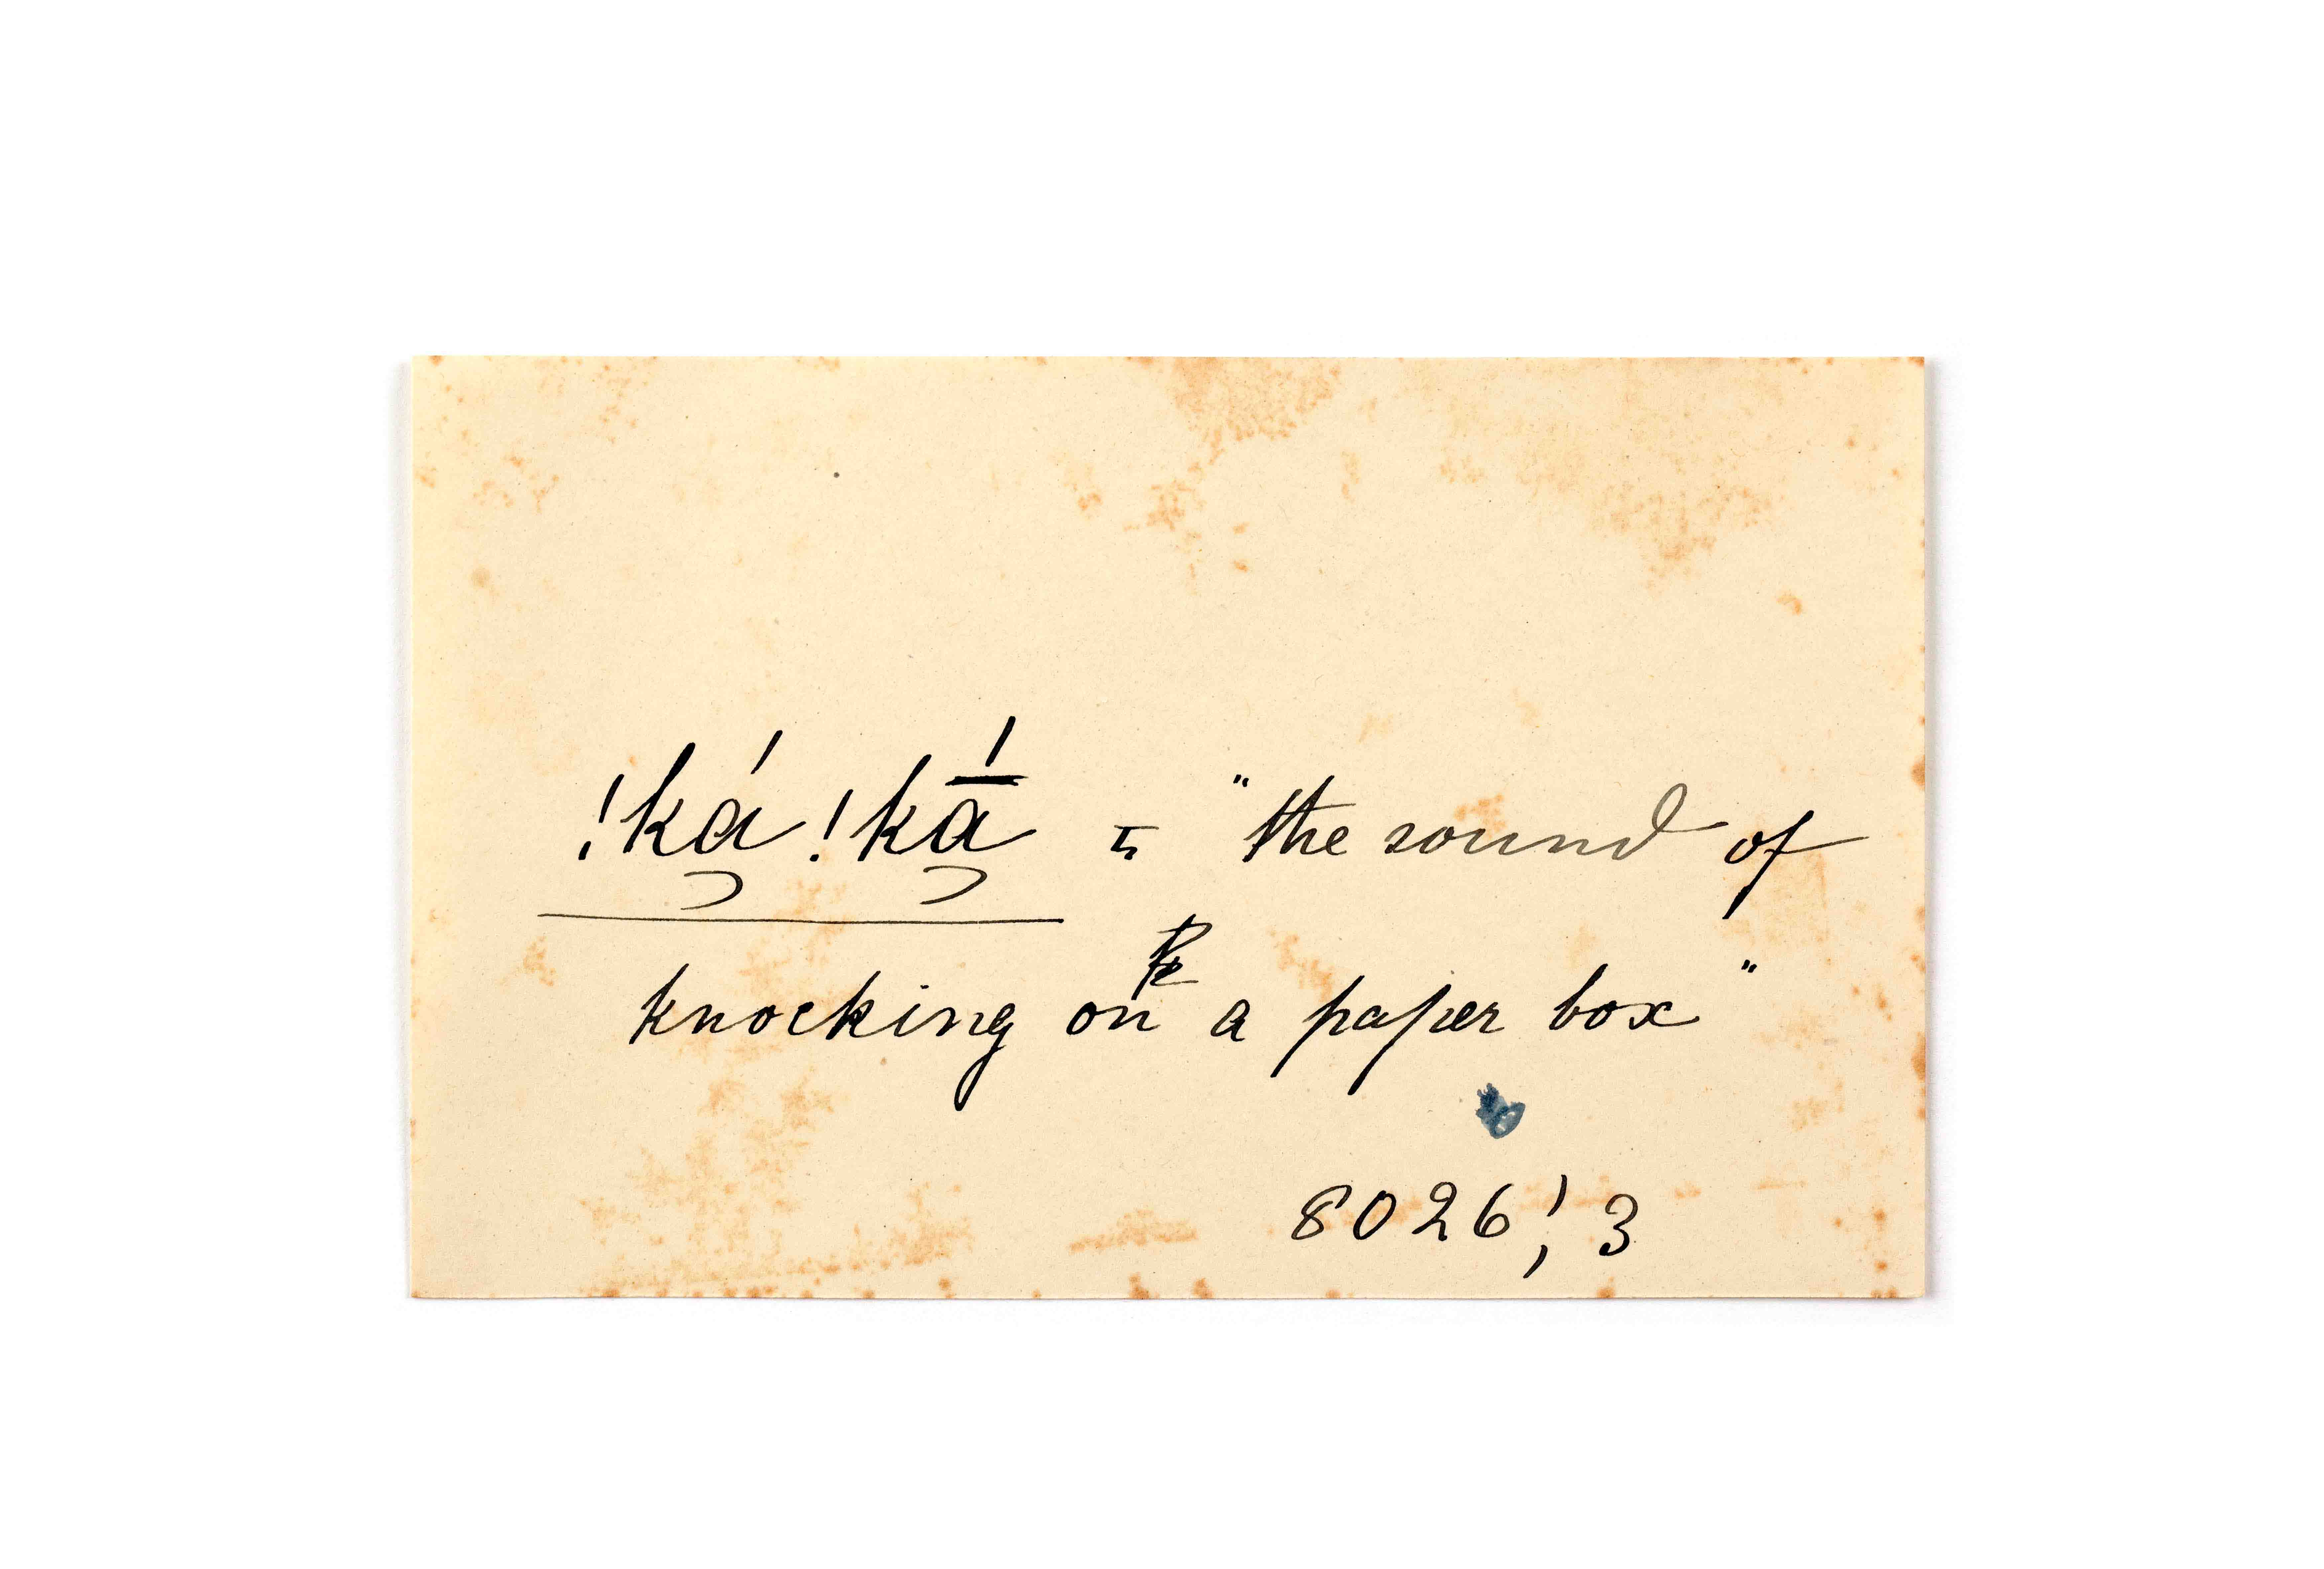 !ká !kā́ = "the sound of
knocking on a paper box"
8026', 3